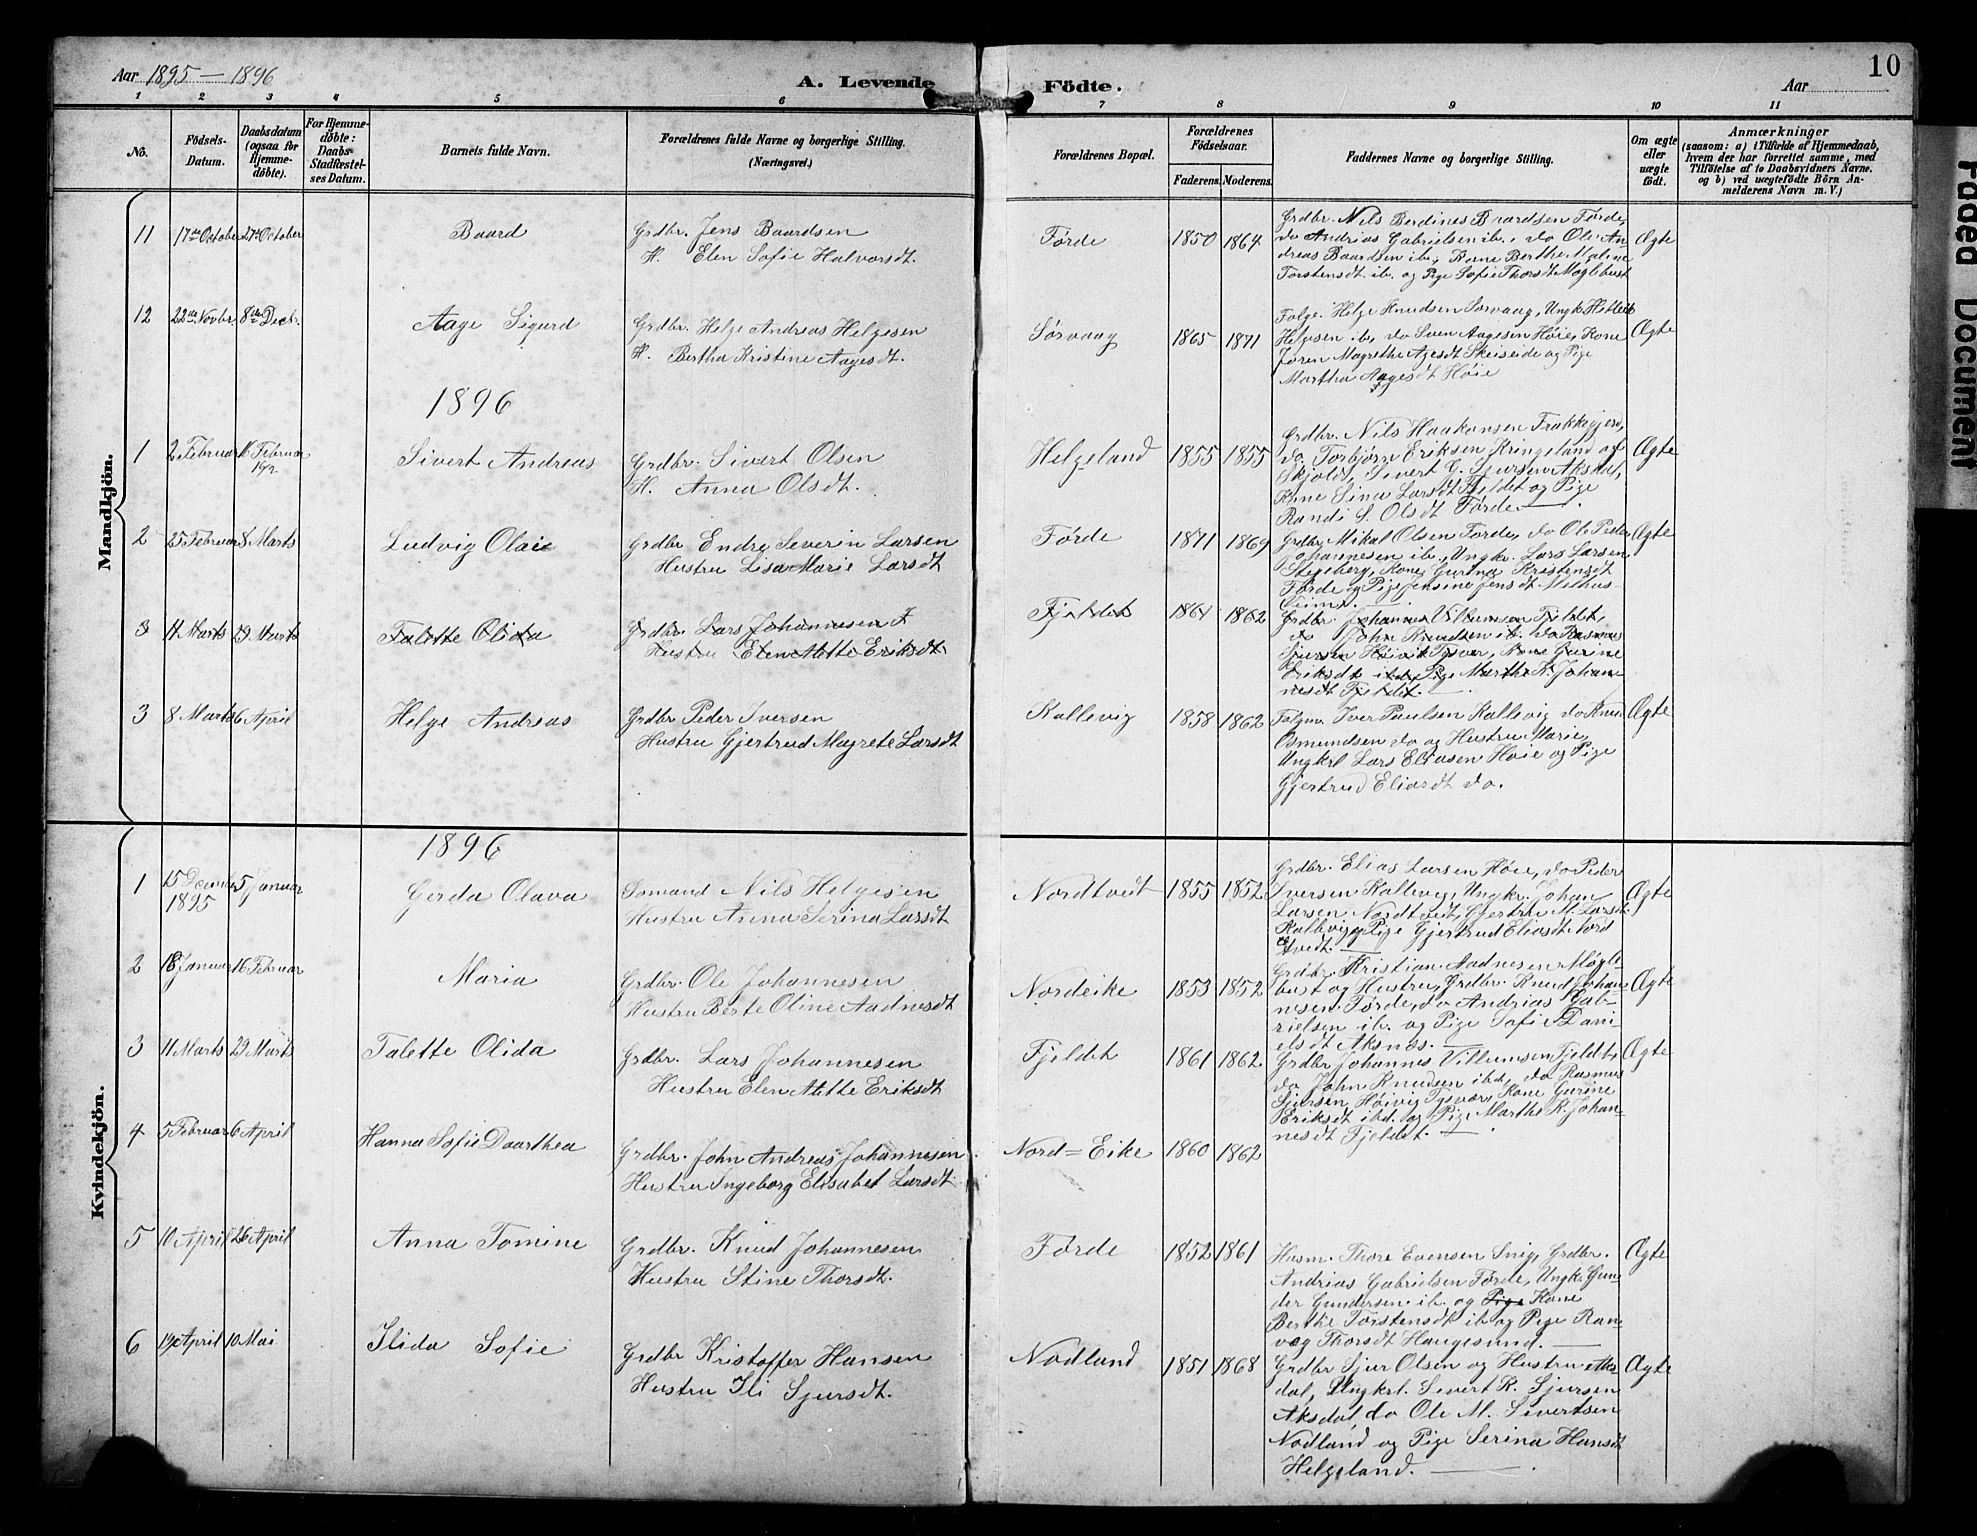 Aar 1895 — 1896
A. Levende
Födte.
Aar
10
1 2 3 4 5 6 7 8 9 10 11
No.
Födsels-
Datum.
Daabsdatum
(ogsaa for
Hjemme-
döbte).
For Hjemme-
döbte:
Daabs-
Stadfæstel-
ses Datum.
Barnets fulde Navn.
Forældrenes fulde Navne og borgerlige Stilling.
(Næringsvei.)
Forældrenes Bopæl.
Forældrenes
Födselsaar.
Faderens. Moderens.
Faddernes Navne og borgerlige Stilling.
Om ægte
eller
uægte
födt.
Anmærkninger
(saasom: a) i Tilfælde af Hjemmedaab,
hvem der har forrettet samme, med
Tilföielse af to Daabsvidners Navne.
og b) ved uægtefödte Börn An-
melderens Navn m. V.)
Mandkjön.
11 17de October 27de October Baard
Grdbr. Jens Baardsen
H. Elen Sofie Halvorsdt.
Førde 1850 1864
Grdbr. Nils Berdines Baardsen Førde,
do Andrias Gabrielsen ib., do Ole An-
dreas Baardsen ib., Kone Berthe Maline
Torstensdt ib. og Pige Sofie Thorsdt Møglebust
Ægte
12 22de Novbr. 8de Decbr. Aage Sigurd
Grdbr. Helge Andreas Helgesen
H. Bertha Kristine Aagesdt.
Sørvaag 1865 1871
Følge. Helge Knudsen Sørvaag, Ungk.
Helgesen ib., do Sven Aagesen Høie, Kone
Jøren Magrethe Agesdt Skeiseide og Pige
Martha Aagesdt Høie
Ægte
1896
1 2 Februar 16 Februar
Sivert Andreas
Grdbr. Sivert Olsen
H. Anna Olsdt.
Helgeland 1855 1855
Grdbr. Nils Haakonsen Frakkagjerd,
do Torbjørn Eriksen Kringeland af
Skjold, Sivert G. Sjursen Aksdal,
Kone Sina Larsdt Fjeldet og Pige
Randi S. Olsdt Førde.
Ægte
2 25 Februar 8 Marts Ludvig Olai
Grdbr Endre Severin Larsen
Hustru Lisa Marie Larsdt
Førde 1871 1869
Grdbr Mikal Olsen Førde, do Ole Peder
Johannesen ib., Ungkr. Lars Larsen
Stegeberg, Kone Gurina Kristensdt
Førde og Pige Jensine Jensdt
Ægte
3 11 Marts 29 Marts Talette Olida
Grdbr. Lars Johannesen F
Hustru Elen Mette Eriksdt
Fjeldet 1861 1862
Grdbr. Johannes Villumsen Fjeldet,
do John Knudsen ib. do Rasmus
Sjursen Høivik Tysvær, Kone Gurine
Eriksdt ibd. Pige Marthe K. Johan-
nesdt Fjeldet.
3 8 Marts 6 April Helge Andreas
Grdbr Peder Iversen
Hustru Gjertrud Magrete Larsdt
Kallevig 1858 1862
Følgm. Iver Paulsen Kallevig do Knud
Osmundsen do og Hustru Marie,
Ungkrl Lars Eliasen Høie og Pige
Gjertrud Eliasdt do.
Ægte
Kvindekjön.
1896
1 15 December 5 Januar
1895
Gerda Olava
Nils Helgesen
Hustru Anna Serina Larsdt
Nordtveit 1855 1852
Grdbr. Elias Larsen Høie, do Peder
Iversen Kallevig, Ungkr. Johan
Larsen Nordtveit, Gjertru M. Larsdt
Kallevig og Pige Gjertrud Eliasdt Nord
tvedt.
Ægte
2 18 Januar 16 Februar Maria
Grdbr. Ole Johannesen
Hustru Berte Oline Aadnesdt
Nordeike 1853 1852
Grdbr. Kristian Aadnesen Møgle-
bust og Hustru, Grdbr. Knud Johan-
nesen Førde, do Andrias Gab-
rielsen ib. og Pige Sofie Dani-
elsdt Aksnæs.
Ægte
3 11 Marts 29 Marts Talette Olida
Grdbr. Lars Johannesen
Hustru Elen Mette Eriksdt
Fjeldet 1861 1862
Grdbr Johannes Villumsen Fjeldt,
do John Knudsen ibd, do Rasmus
Sjursen Høivig Tysvær, Kone Gurine
Eriksdt ibd. og Pige Marthe K. Johan-
nesdt Fjeldet.
Ægte
4 5 Februar 6 April Hanna Sofie Daarthea
Grdbr. John Andreas Johannesen
Hustru Ingeborg Elisabet Larsdt.
Nord=Eike 1860 1862
5 10 April 26 April Anna Tomine
Grdbr. Knud Johannesen
Hustru Stine Thorsdt.
Førde 1852 1861
Husm. Thore Evensen Snig, Grdbr.
Andrias Gabrielsen Førde, Ungk. Gun-
der Gundersen ib. og Pige Kone
Berthe Torstensdt ib og Pige Ran-
veg Thorsdt Haugesund.
Ægte
6 19 April 10 Mai Ilida Sofie
Grdbr Kristoffer Hansen
Hustru Ili Sjursdt.
Nodland 1851 1868
Grdbr Sjur Olsen og Hustru Aks-
dal, Ungkrl. Sivert R. Sjursen
Aksdal, do Ole M. Sivertsen
Nodland og Pige Serina Hansdt
Helgeland.
Ægte
Faded Document